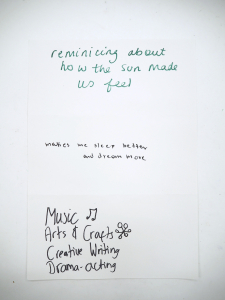 reminicing about
how the sun made
us feel
makes me sleep better
and dream more
Music
Arts & Crafts
Creative Writing
Drama-acting